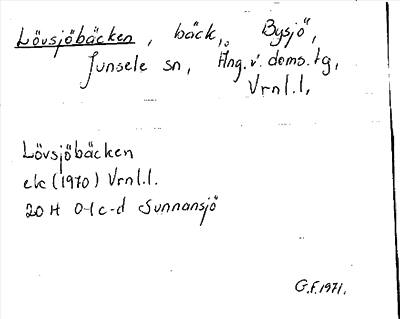 Lövsjöbäcken, bäck, Bysjö,
Junsele sn, Ång. v. doms. tg,
Vrnl.l,
Lövsjöbäcken
ek (1970) Vrnl.l.
20 H 0-1 c-d Sunnansjö
G.F. 1971.